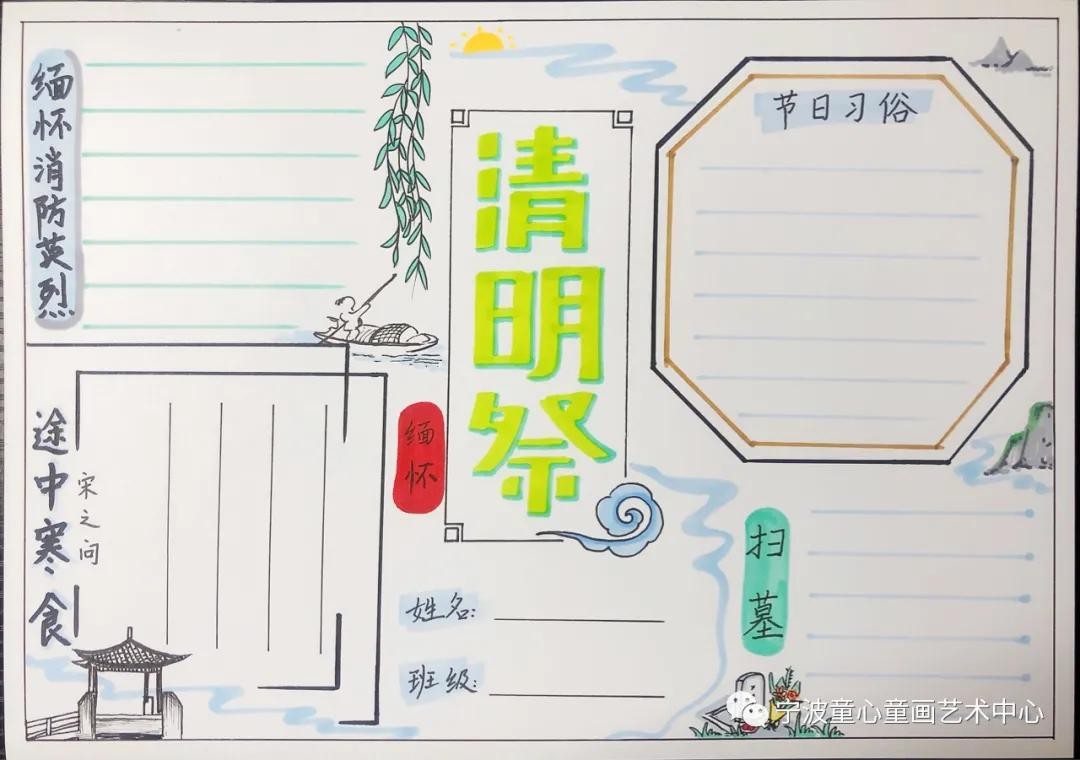 缅怀消防英烈
清明祭
节日习俗
缅怀
途中寒食
宋之问
扫墓
姓名:
班级:
宁波童心童画艺术中心